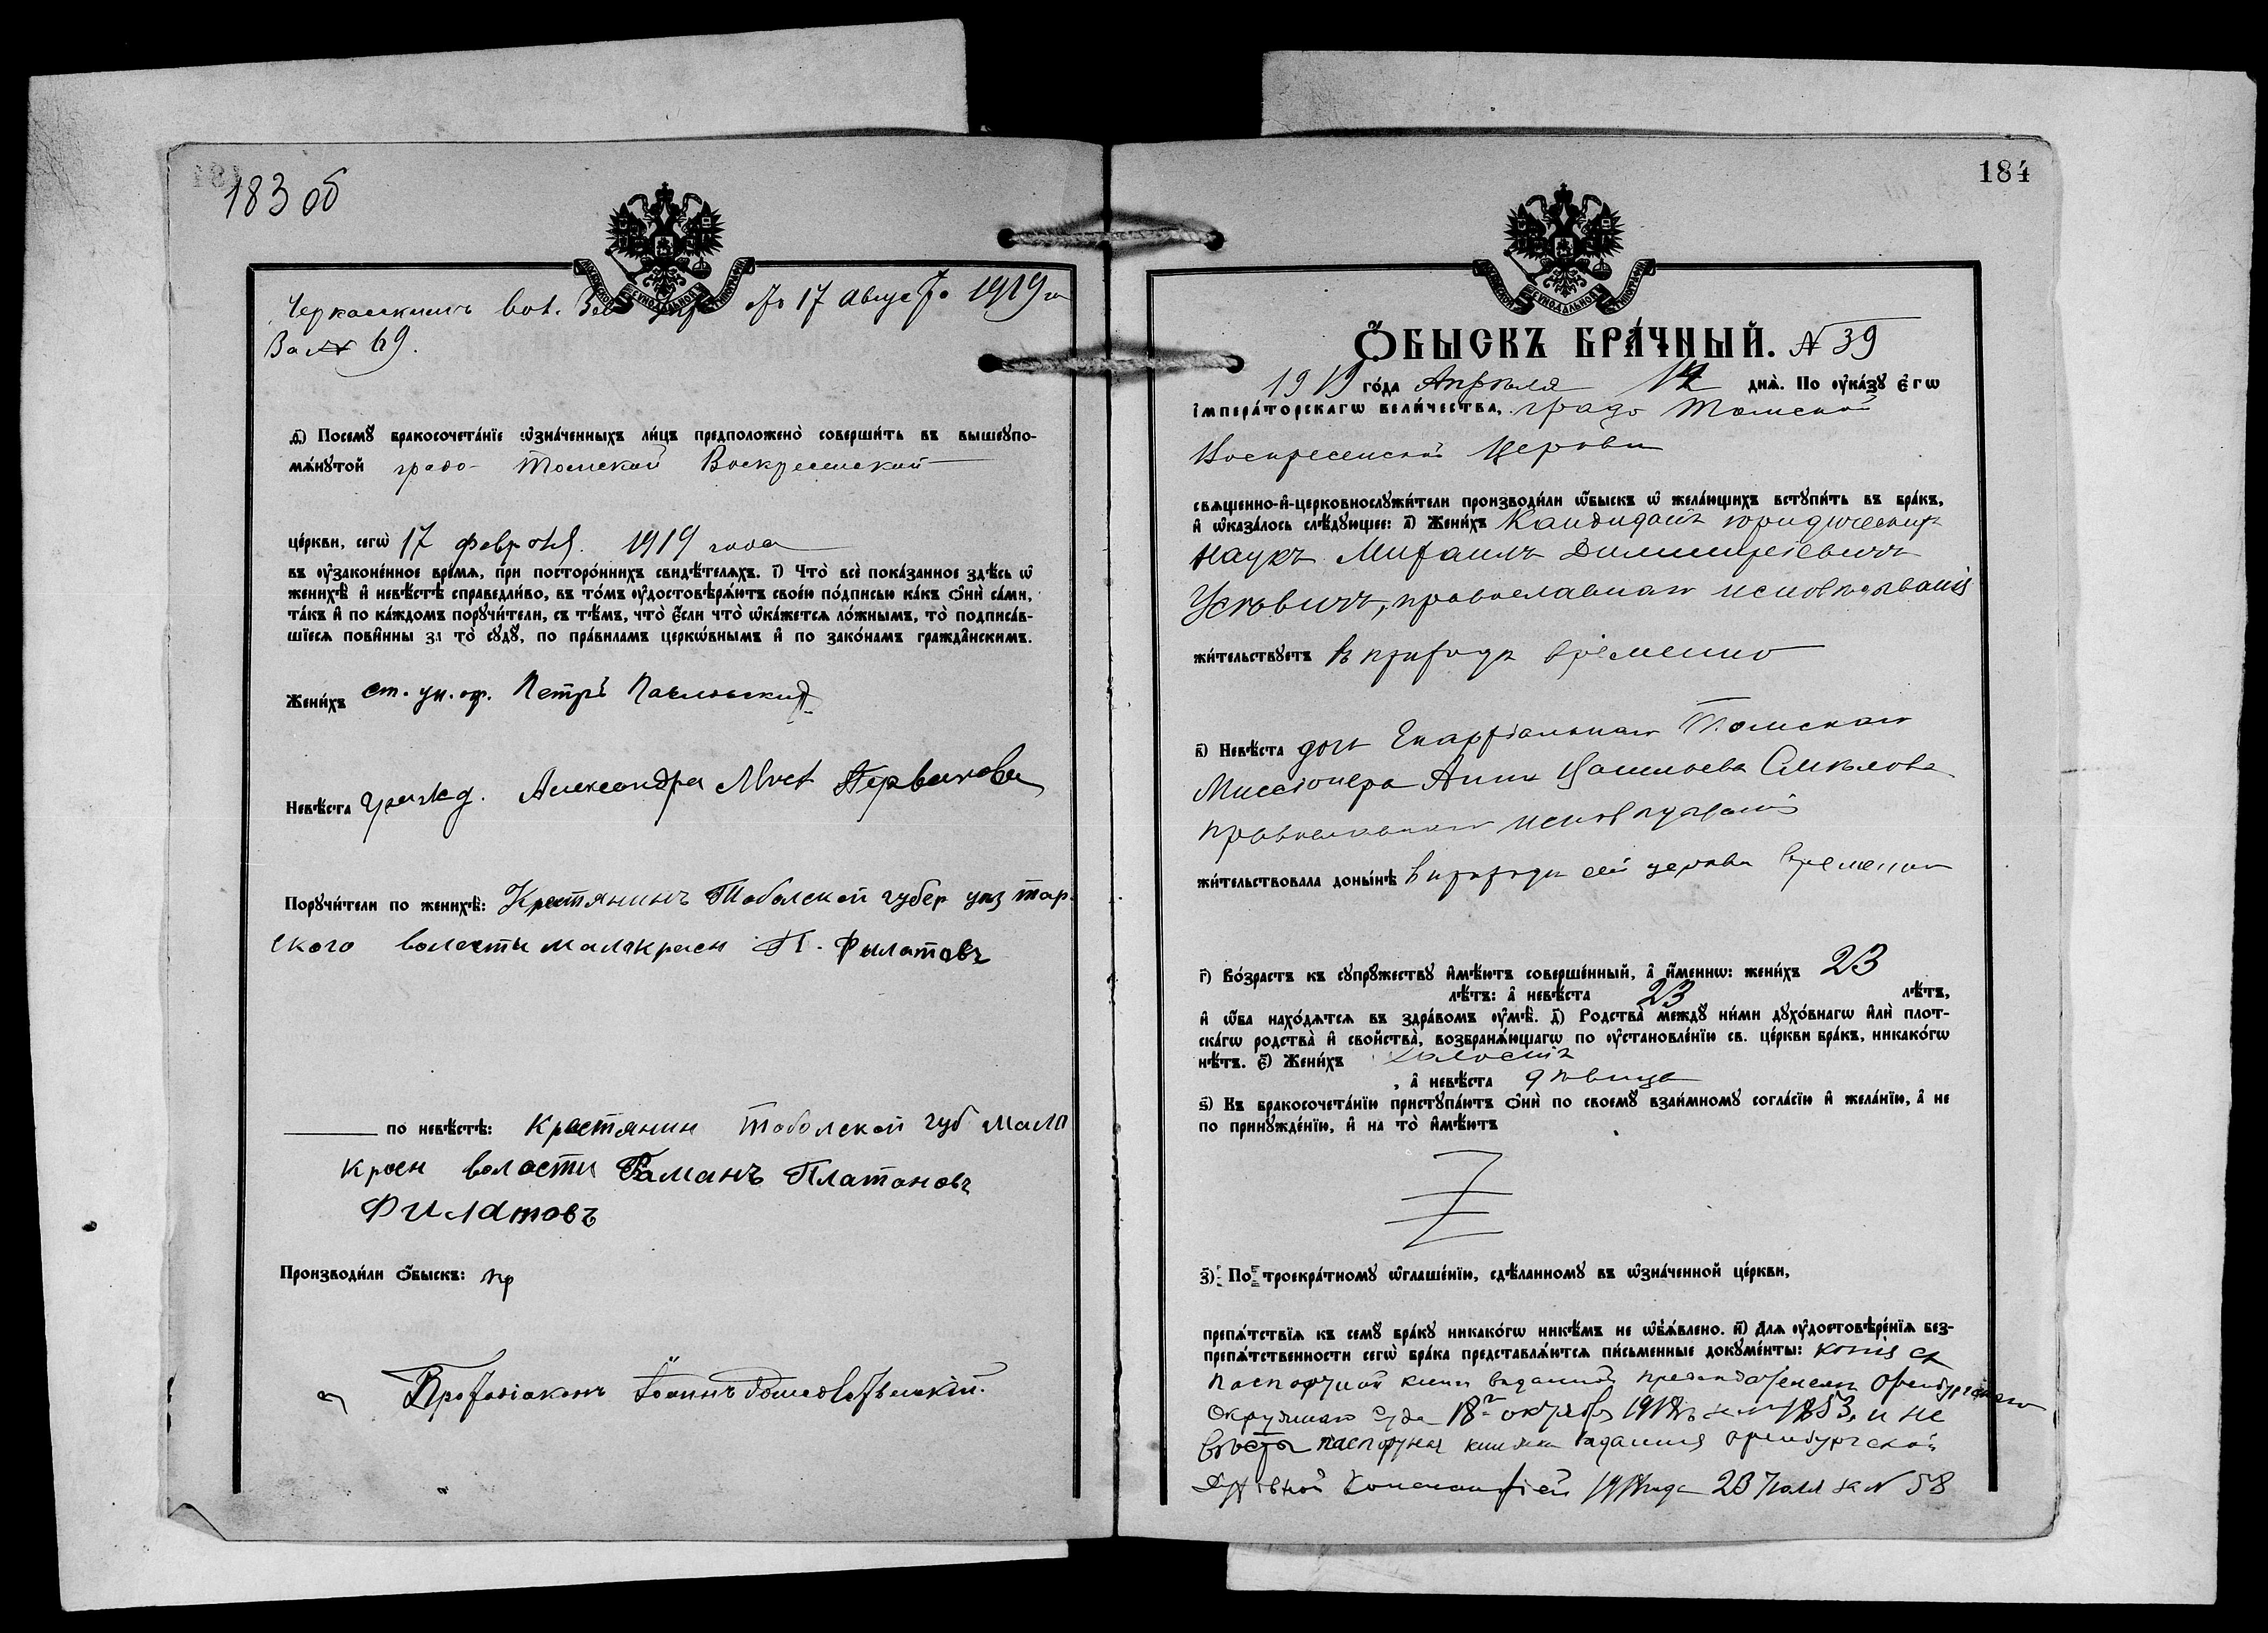 183 об
МОСКОВСКОЙ СѴНОДАЛЬНОЙ ТИПОГРАФІИ
17 август 1919 г
За № 69.
д҃) Посемꙋ̀ бракосочета́нїе ѡ҆зна́ченныхъ ли́цъ предположено̀ соверши́ть въ вышеꙋпо-
мѧ́нꙋтой градо-Томской Воскресенской
це́ркви, сегѡ̀ 17 февраля 1919 года
въ ᲂу҆зако́ненное вре́мѧ, при посторо́ннихъ свидѣ́телѧхъ. і҃) Что̀ всѐ пока́занное здѣ́сь ѡ҆
женихѣ̀ и҆ невѣ́стѣ справедли́во, въ то́мъ ᲂу҆достовѣрѧ́ютъ свое́ю по́дписью ка́къ ѻ҆нѝ са́ми,
та́къ и҆ по ка́ждомъ порꙋчи́тели, съ тѣ́мъ, что̀ є҆́сли что̀ ѡ҆ка́жетсѧ ло́жнымъ, то̀ подписа́в-
шїесѧ пови́нны за то̀ сꙋдꙋ̀, по пра́виламъ церкѡ́внымъ и҆ по зако́намъ гражда̂нскимъ.
Жени́хъ ст. ун. оф. Петръ
Невѣ́ста гражд. Александра
Порꙋчи́тели по женихѣ̀: Крестянинъ Тоболской губер уез тар-
ского воласти малакрасн П. Фылатовъ
по невѣ́стѣ: Крестянин Тоболской губ мало
красн воласти Раманъ Платоновъ
Филатовъ
Производи́ли ѻ҆́быскъ: пр
Протодіаконъ Іоаннъ
184
МОСКОВСКОЙ СѴНОДАЛЬНОЙ ТИПОГРАФІИ
Ѻ҆́БЫСКЪ БРА́ЧНЫЙ. № 39
1919 го́да Апрѣля 14 днѧ̀. По ᲂу҆ка́зꙋ є҆гѡ̀
і҆мпера́торскагѡ вели́чества, градо Томской
Воскресенской церкви
свѧще́нно-и҆-церковнослꙋжи́тели производи́ли ѡ҆́быскъ ѡ҆ жела́ющихъ встꙋпи́ть въ бра́къ,
и҆ ѡ҆каза́лось слѣ́дꙋющее: а҃) Жени́хъ Кандидатъ юридическихъ
наукъ Михаилъ Димитріевичъ
Усковичъ, православнаго исповѣданія
жи́тельствꙋетъ въ приходѣ временно
в҃) Невѣ́ста дочь Епархіальнаго Томскаго
Миссіонера Анна Смѣлова
православнаго исповѣданія
жи́тельствовала доны́нѣ въ приходѣ сей церкви временно
г҃) Во́зрастъ къ сꙋпрꙋ́жествꙋ и҆мѣ́ютъ соверше́нный, а҆ и҆́меннѡ: жени́хъ 23
лѣ́тъ: а҆ невѣ́ста 23 лѣ́тъ,
и҆ ѻ҆́ба нахо́дѧтсѧ въ здра́вомъ ᲂу҆мѣ̀. д҃) Родства̀ междꙋ̀ ни́ми дꙋхо́внагѡ и҆лѝ плот-
ска́гѡ родства̀ и҆ сво́йства̀, возбранѧ́ющагѡ по ᲂу҆становле́нїю св. це́ркви бра́къ, никако́гѡ
нѣ́тъ. є҃) Жени́хъ холостъ
, а҆ невѣ́ста дѣвица
ѕ҃) Къ бракосочета́нїю пристꙋпа́ютъ ѻ҆нѝ по своемꙋ̀ взаи́мномꙋ согла́сїю и҆ жела́нїю, а҆ не
по принꙋжде́нїю, и҆ на то̀ и҆мѣ́ютъ
з҃) По троекра́тномꙋ ѡ҆глаше́нїю, сдѣ́ланномꙋ въ ѡ҆зна́ченной це́ркви,
препѧ́тствїѧ къ семꙋ̀ бра́кꙋ никако́гѡ никѣ́мъ не ѡ҆б̾ѧ́влено. и҃) Длѧ ᲂу҆достовѣре́нїѧ без-
препѧ́тственности сегѡ̀ бра́ка представлѧ́ютсѧ пи́сьменные докꙋме́нты: копія съ
паспортной книги выданной предсѣдателемъ Оренбургскаго
Окружнаго суда 18го октября 1918 за № 1853, и не
вѣсты паспортная книжка выданная Оренбургской
Духовной Консисторіей 1918 года 23 Іюля за № 58